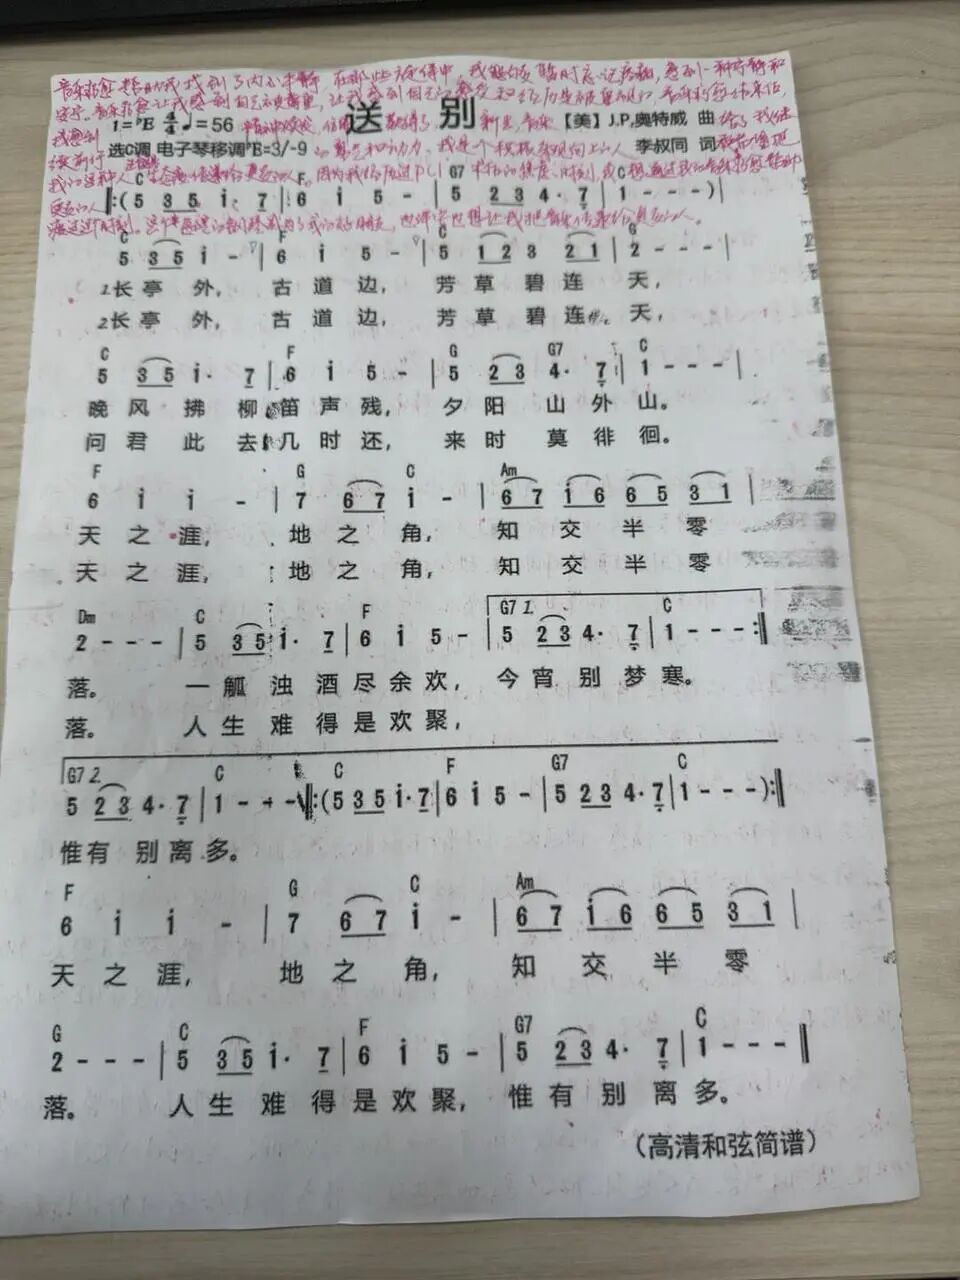 音乐疗愈帮助我找到了内心平静，在那些旋律中，我能够暂时忘记疼痛，感到一种宁静和
安宁。音乐疗愈让我感到自己不再孤单，让我感到自己的
送 别
1=♭E 4/4 ♩=56 【美】J.P.奥特威 曲
选C调 电子琴移调♭E=3/-9 李叔同 词
的勇气和动力。我是个积极
C F G7 C
‖:(5 3 5 i· 7 | 6 i 5 - | 5 2 3 4· 7 | 1 - - -)|
C F C G
5 3 5 i - | 6 i 5 - | 5 1 2 3 2 1 | 2 - - - |
1长 亭 外, 古 道 边, 芳 草 碧 连 天,
2长 亭 外, 古 道 边, 芳 草 碧 连 天,
C F G G7 C
5 3 5 i· 7 | 6 i 5 - | 5 2 3 4· 7 | 1 - - - |
晚 风 拂 柳 笛 声 残, 夕 阳 山 外 山。
问 君 此 去 几 时 还, 来 时 莫 徘 徊。
F G C Am
6 i i - | 7 6 7 i - | 6 7 i 6 6 5 3 1 |
天 之 涯, 地 之 角, 知 交 半 零
天 之 涯, 地 之 角, 知 交 半 零
Dm C F G7 1. C
2 - - - | 5 3 5 i· 7 | 6 i 5 - | 5 2 3 4· 7 | 1 - - - :‖
落。 一 觚 浊 酒 尽 余 欢, 今 宵 别 梦 寒。
落。 人 生 难 得 是 欢 聚,
G7 2. C C F G7 C
5 2 3 4· 7 | 1 - - - ‖:(5 3 5 i· 7 | 6 i 5 - | 5 2 3 4· 7 | 1 - - -):‖
惟 有 别 离 多。
F G C Am
6 i i - | 7 6 7 i - | 6 7 i 6 6 5 3 1 |
天 之 涯, 地 之 角, 知 交 半 零
G C F G7 C
2 - - - | 5 3 5 i· 7 | 6 i 5 - | 5 2 3 4· 7 | 1 - - - ‖
落。 人 生 难 得 是 欢 聚, 惟 有 别 离 多。
(高清和弦简谱)